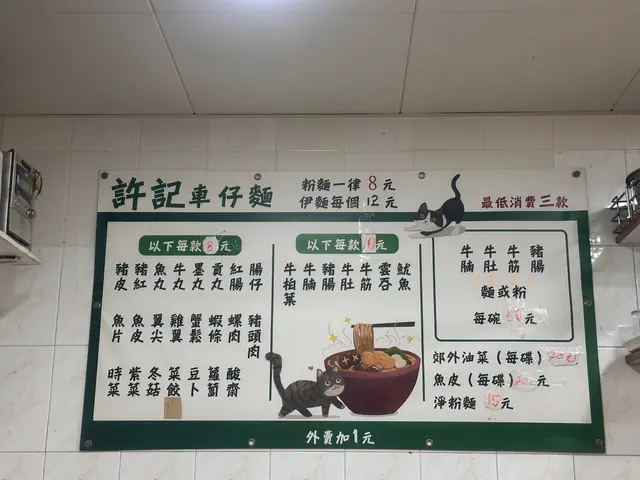 許記車仔麵
粉麵一律 8 元
伊麵每個 12 元
最低消費三款
以下每款8元
豬皮
豬紅
魚丸
牛丸
墨丸
貢丸
紅腸
腸仔
魚片
魚皮
翼尖
雞翼
蟹鬆
蝦條
螺肉
豬頭肉
時菜
紫菜
冬菇
菜餃
豆卜
蘿蔔
酸齋
以下每款10元
牛柏葉
牛腩
豬腸
牛肚
牛筋
雲吞
魷魚
牛腩
牛肚
牛筋
豬腸
麵或粉
每碗 元
郊外油菜(每碟)20元
魚皮(每碟)20元
淨粉麵 15元
外賣加1元